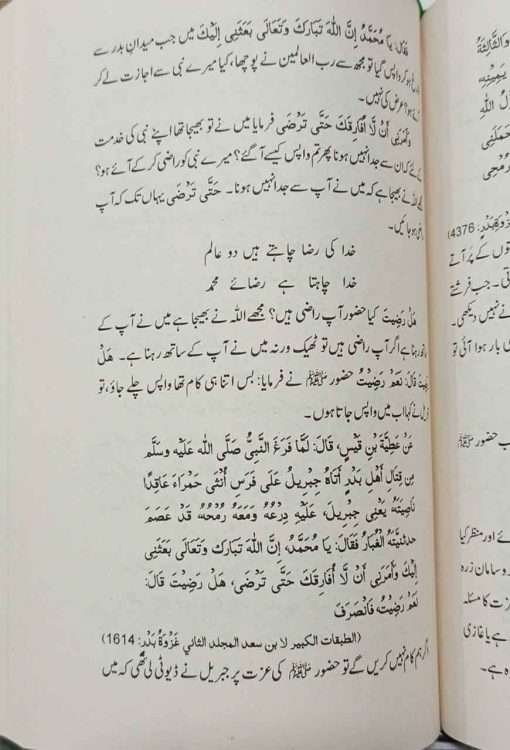 فقال: يَا مُحَمَّدُ إِنَّ اللّٰهَ تَبَارَكَ وَتَعَالَى بَعَثَنِي إِلَيْكَ میں جب میدانِ بدر سے
واپس گیا تو مجھ سے رب العالمین نے پوچھا، کیا میرے نبی سے اجازت لے کر
عرض کی نہیں۔
وَأَمَرَنِي أَنْ لَّا أُفَارِقَكَ حَتَّى تَرْضَى فرمایا میں نے تو بھیجا تھا اپنے نبی کی خدمت
کے لئے کہ ان سے جدا نہیں ہونا پھر تم واپس کیسے آ گئے؟ میرے نبی کو راضی کر کے آئے ہو؟
اللہ نے بھیجا ہے کہ میں نے آپ سے جدا نہیں ہونا۔ حَتَّى تَرْضَى یہاں تک کہ آپ
ہو جائیں۔
خدا کی رضا چاہتے ہیں دو عالم
خدا چاہتا ہے رضائے محمد
هَلْ رَضِيتَ کیا حضور آپ راضی ہیں؟ مجھے اللہ نے بھیجا ہے میں نے آپ کے
رہنا ہے اگر آپ راضی ہیں تو ٹھیک ورنہ میں نے آپ کے ساتھ رہنا ہے۔ هَلْ
رَضِيتَ قَالَ: نَعَمْ رَضِيْتُ حضور ﷺ نے فرمایا: بس اتنا ہی کام تھا واپس چلے جاؤ، تو
جبریل نے کہا اب میں واپس جاتا ہوں۔
عَنْ عَطِيَّةَ بْنِ قَيْسٍ، قَالَ: لَمَّا فَرَغَ النَّبِيُّ صَلَّى اللّٰه عَلَيْهِ وَسَلَّم
مِن قِتَالِ أَهْلِ بَدْرٍ أَتَاهُ جِبْرِيلُ عَلَى فَرَسٍ أُنْثَى حَمْرَاءَ عَاقِدًا
نَاصِيَتَهُ يَعْنِي جِبْرِيلَ، عَلَيْهِ دِرْعُهُ وَمَعَهُ رُمْحُهُ قَدْ عَصَمَ
الْغُبَارُ فَقَالَ: يَا مُحَمَّدُ، إِنَّ اللّٰهَ تَبَارَكَ وَتَعَالَى بَعَثَنِي
إِلَيْكَ وَأَمَرَنِي أَنْ لَّا أُفَارِقَكَ حَتَّى تَرْضَى، هَلْ رَضِيْتَ قَالَ:
نَعَمْ رَضِيْتُ فَانْصَرَفَ
(الطبقات الكبير لا بن سعد المجلد الثاني غَزْوَةُ بَدْرٍ: 1614)
اگر ہم کام نہیں کریں گے تو حضور ﷺ کی عزت پر جبریل نے ڈیوٹی لی تھی کہ میں
وَالثَّالِثَةُ
يَمِيْنِهِ
اللّٰهِ
حَمَلَنِي
رُمْحِي
غَزْوَةِ بَدْرٍ: 4376)
کے پر آتے
تی۔ جب فرشتے
نے نہیں دیکھی۔
بار ہوا آئی تو
ب حضور ﷺ
ئے اور منظر کیا
و سامان زرہ
عزت کا مسئلہ
ہے یا غازی
ہ ہے۔